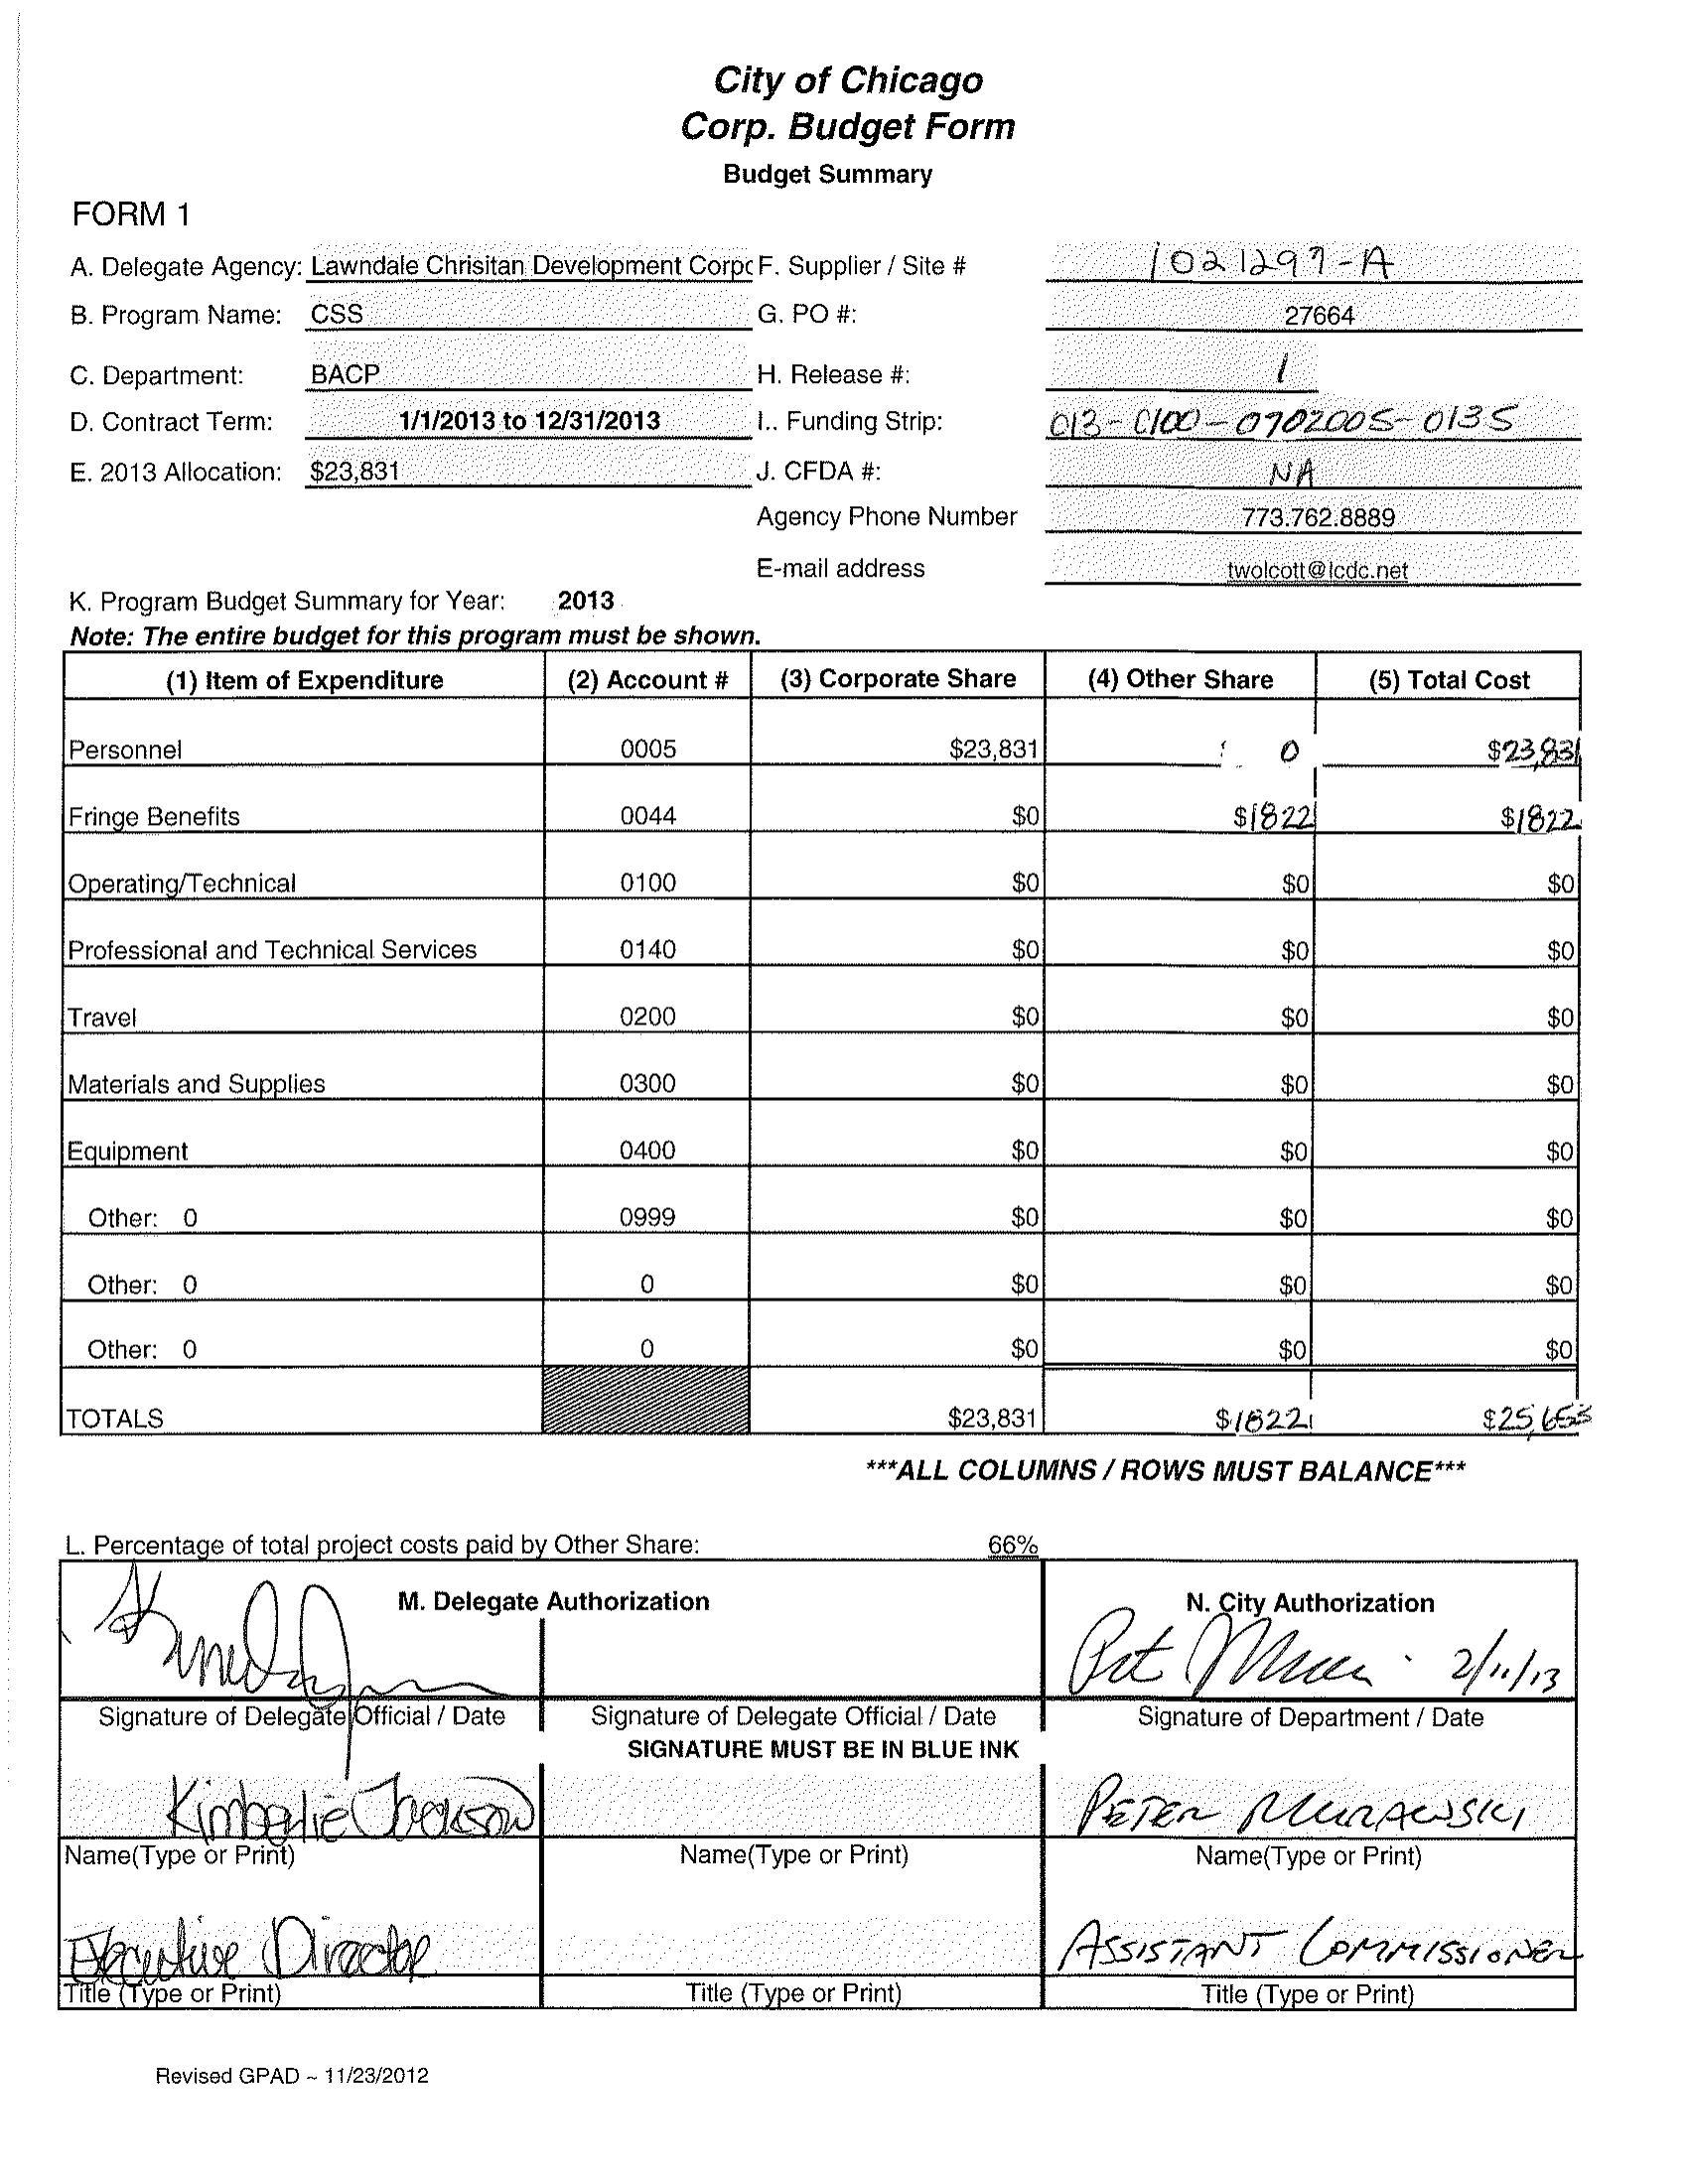 City of Chicago
Corp. Budget Form
Budget Summary
FORM 1
A. Delegate Agency: Lawndale Chrisitan Development Corpc F. Supplier / Site # 1021297-A
B. Program Name: CSS G. PO #: 27664
C. Department: BACP H. Release #: 1
D. Contract Term: 1/1/2013 to 12/31/2013 I.. Funding Strip: 013-0100-0702005-0135
E. 2013 Allocation: $23,831 J. CFDA #: NA
Agency Phone Number 773.762.8889
E-mail address twolcott@lcdc.net
K. Program Budget Summary for Year: 2013
Note: The entire budget for this program must be shown.
(1) Item of Expenditure (2) Account # (3) Corporate Share (4) Other Share (5) Total Cost
Personnel 0005 $23,831 0 $23,831
Fringe Benefits 0044 $0 $1822 $1822
Operating/Technical 0100 $0 $0 $0
Professional and Technical Services 0140 $0 $0 $0
Travel 0200 $0 $0 $0
Materials and Supplies 0300 $0 $0 $0
Equipment 0400 $0 $0 $0
Other: 0 0999 $0 $0 $0
Other: 0 0 $0 $0 $0
Other: 0 0 $0 $0 $0
TOTALS $23,831 $1822 $25,653
***ALL COLUMNS / ROWS MUST BALANCE***
L. Percentage of total project costs paid by Other Share: 66%
M. Delegate Authorization N. City Authorization
2/11/13
Signature of Delegate Official / Date Signature of Delegate Official / Date Signature of Department / Date
SIGNATURE MUST BE IN BLUE INK
Kimberlie Jackson PETER MURAWSKI
Name(Type or Print) Name(Type or Print) Name(Type or Print)
Executive Director ASSISTANT COMMISSIONER
Title (Type or Print) Title (Type or Print) Title (Type or Print)
Revised GPAD ~ 11/23/2012